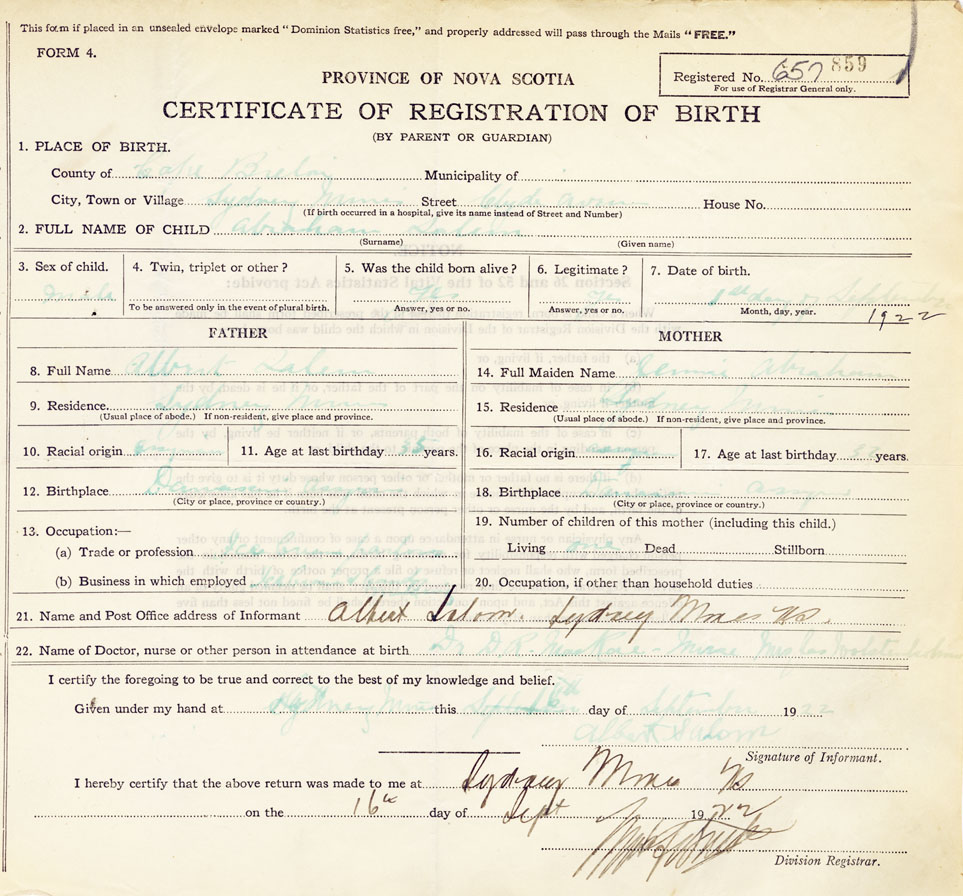 This form if placed in an unsealed envelope marked "Dominion Statistics free," and properly addressed will pass through the Mails "FREE."
FORM 4.
Registered No. 657 859
For use of Registrar General only.
PROVINCE OF NOVA SCOTIA
CERTIFICATE OF REGISTRATION OF BIRTH
(BY PARENT OR GUARDIAN)
1. PLACE OF BIRTH.
County of Cape Breton Municipality of
City, Town or Village Sydney Mines Street Clyde Avenue House No.
(If birth occurred in a hospital, give its name instead of Street and Number)
2. FULL NAME OF CHILD Abraham Salem
(Surname) (Given name)
3. Sex of child. 4. Twin, triplet or other? 5. Was the child born alive? 6. Legitimate? 7. Date of birth.
male Yes yes 1st day of September
To be answered only in the event of plural birth. Answer, yes or no. Answer, yes or no. Month, day, year. 1922
FATHER MOTHER
8. Full Name Albert Salem 14. Full Maiden Name Abraham
9. Residence Sydney Mines 15. Residence Sydney Mines
(Usual place of abode.) If non-resident, give place and province. (Usual place of abode.) If non-resident, give place and province.
10. Racial origin 11. Age at last birthday 35 years. 16. Racial origin 17. Age at last birthday years.
12. Birthplace 18. Birthplace
(City or place, province or country.) (City or place, province or country.)
13. Occupation:— 19. Number of children of this mother (including this child.)
(a) Trade or profession Ice Cream Parlour Living one Dead Stillborn
(b) Business in which employed 20. Occupation, if other than household duties
21. Name and Post Office address of Informant Albert Salom. Sydney Mines NS.
22. Name of Doctor, nurse or other person in attendance at birth Dr D.R.
I certify the foregoing to be true and correct to the best of my knowledge and belief.
Given under my hand at Sydney Mines this 16th day of September 1922
Albert Salom
Signature of Informant.
I hereby certify that the above return was made to me at Sydney Mines NS
on the 16th day of Sept 1922
Division Registrar.